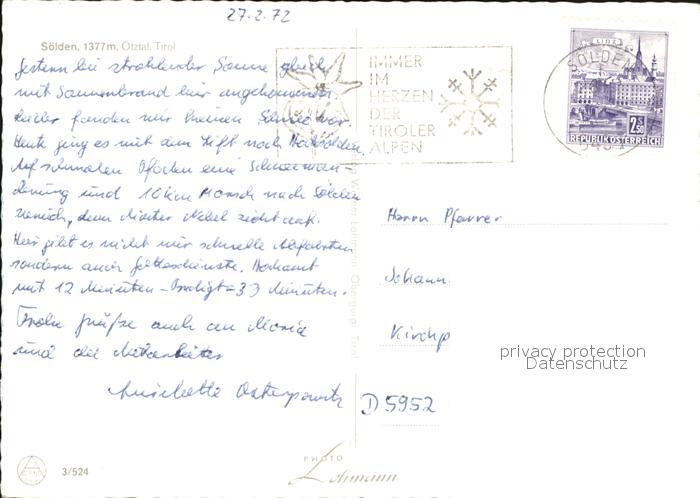 27.2.72
Sölden, 1377m, Ötztal, Tirol
Gestern bei strahlender Sonne gleich
mit Sonnenbrand hier angekommen.
Leider fanden wir keinen Schnee vor.
Heute ging es mit dem Lift nach Hochsölden.
Auf schmalen Pfaden eine Schneewan-
derung und 10 km Marsch nach Sölden
zurück, denn dichter Nebel zieht auf.
Hier gibt es nicht nur schnelle Abfahrten
sondern auch Gottesdienste. Hochamt
mit 12 Minuten-Predigt = 33 Minuten.
Frohe Grüße auch an Maria
und die Mitarbeiter
Osterpowitz
IMMER
IM
HERZEN
DER
TIROLER
ALPEN
LINZ
SÖLDEN
2.50
S
REPUBLIK ÖSTERREICH
Herrn Pfarrer
Johann
Kirchp
D 5952
privacy protection
Datenschutz
PHOTO
Lohmann
3/524